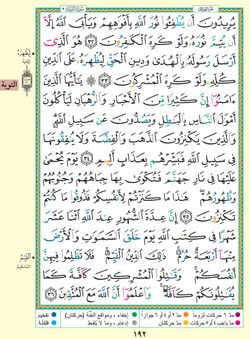 يُرِيدُونَ أَن يُطْفِـُٔوا۟ نُورَ ٱللَّهِ بِأَفْوَٰهِهِمْ وَيَأْبَى ٱللَّهُ إِلَّآ
أَن يُتِمَّ نُورَهُۥ وَلَوْ كَرِهَ ٱلْكَٰفِرُونَ ٣٢ هُوَ ٱلَّذِىٓ
أَرْسَلَ رَسُولَهُۥ بِٱلْهُدَىٰ وَدِينِ ٱلْحَقِّ لِيُظْهِرَهُۥ عَلَى ٱلدِّينِ
كُلِّهِۦ وَلَوْ كَرِهَ ٱلْمُشْرِكُونَ ٣٣ يَٰٓأَيُّهَا ٱلَّذِينَ
ءَامَنُوٓا۟ إِنَّ كَثِيرًا مِّنَ ٱلْأَحْبَارِ وَٱلرُّهْبَانِ لَيَأْكُلُونَ
أَمْوَٰلَ ٱلنَّاسِ بِٱلْبَٰطِلِ وَيَصُدُّونَ عَن سَبِيلِ ٱللَّهِ
وَٱلَّذِينَ يَكْنِزُونَ ٱلذَّهَبَ وَٱلْفِضَّةَ وَلَا يُنفِقُونَهَا
فِى سَبِيلِ ٱللَّهِ فَبَشِّرْهُم بِعَذَابٍ أَلِيمٍ ٣٤ يَوْمَ يُحْمَىٰ
عَلَيْهَا فِى نَارِ جَهَنَّمَ فَتُكْوَىٰ بِهَا جِبَاهُهُمْ وَجُنُوبُهُمْ
وَظُهُورُهُمْ هَٰذَا مَا كَنَزْتُمْ لِأَنفُسِكُمْ فَذُوقُوا۟ مَا كُنتُمْ
تَكْنِزُونَ ٣٥ إِنَّ عِدَّةَ ٱلشُّهُورِ عِندَ ٱللَّهِ ٱثْنَا عَشَرَ
شَهْرًا فِى كِتَٰبِ ٱللَّهِ يَوْمَ خَلَقَ ٱلسَّمَٰوَٰتِ وَٱلْأَرْضَ
مِنْهَآ أَرْبَعَةٌ حُرُمٌ ذَٰلِكَ ٱلدِّينُ ٱلْقَيِّمُ فَلَا تَظْلِمُوا۟
فِيهِنَّ أَنفُسَكُمْ وَقَٰتِلُوا۟ ٱلْمُشْرِكِينَ كَآفَّةً كَمَا
يُقَٰتِلُونَكُمْ كَآفَّةً وَٱعْلَمُوٓا۟ أَنَّ ٱللَّهَ مَعَ ٱلْمُتَّقِينَ ٣٦
لِيُظْهِرَهُ
التوبة
مدّ ٦ حركات لزوماً مدّ ٢ أو ٤ أو ٦ جوازاً إخفاء، ومواقع الغُنَّة (حركتان) تفخيم
مدّ واجب ٤ أو ٥ حركات مدّ حركتان إدغام، وما لا يُلفَظ قلقلة
١٩٢